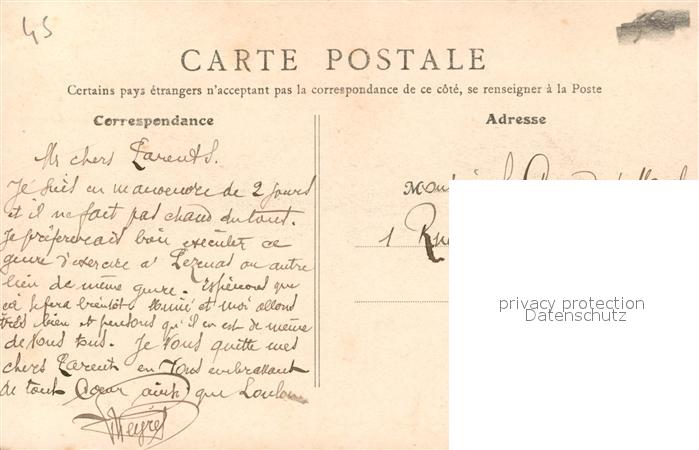 45
CARTE POSTALE
Certains pays étrangers n'acceptant pas la correspondance de ce côté, se renseigner à la Poste
Correspondance
Adresse
Ms chers Parents.
Je suis en manoeuvre de 2 jours
et il ne fait pas chaud du tout.
Je préfererais bien exécuter ce
genre d'exercice à Pezenas ou autre
lieu de même genre. Espérons que
ça se fera bientôt et moi allons
très bien et pensons qu'il en est de même
de vous tous. Je vous quitte mes
chers Parent en vous embrassant
de tout Coeur ainsi que Loulou
1 Rue
privacy protection
Datenschutz